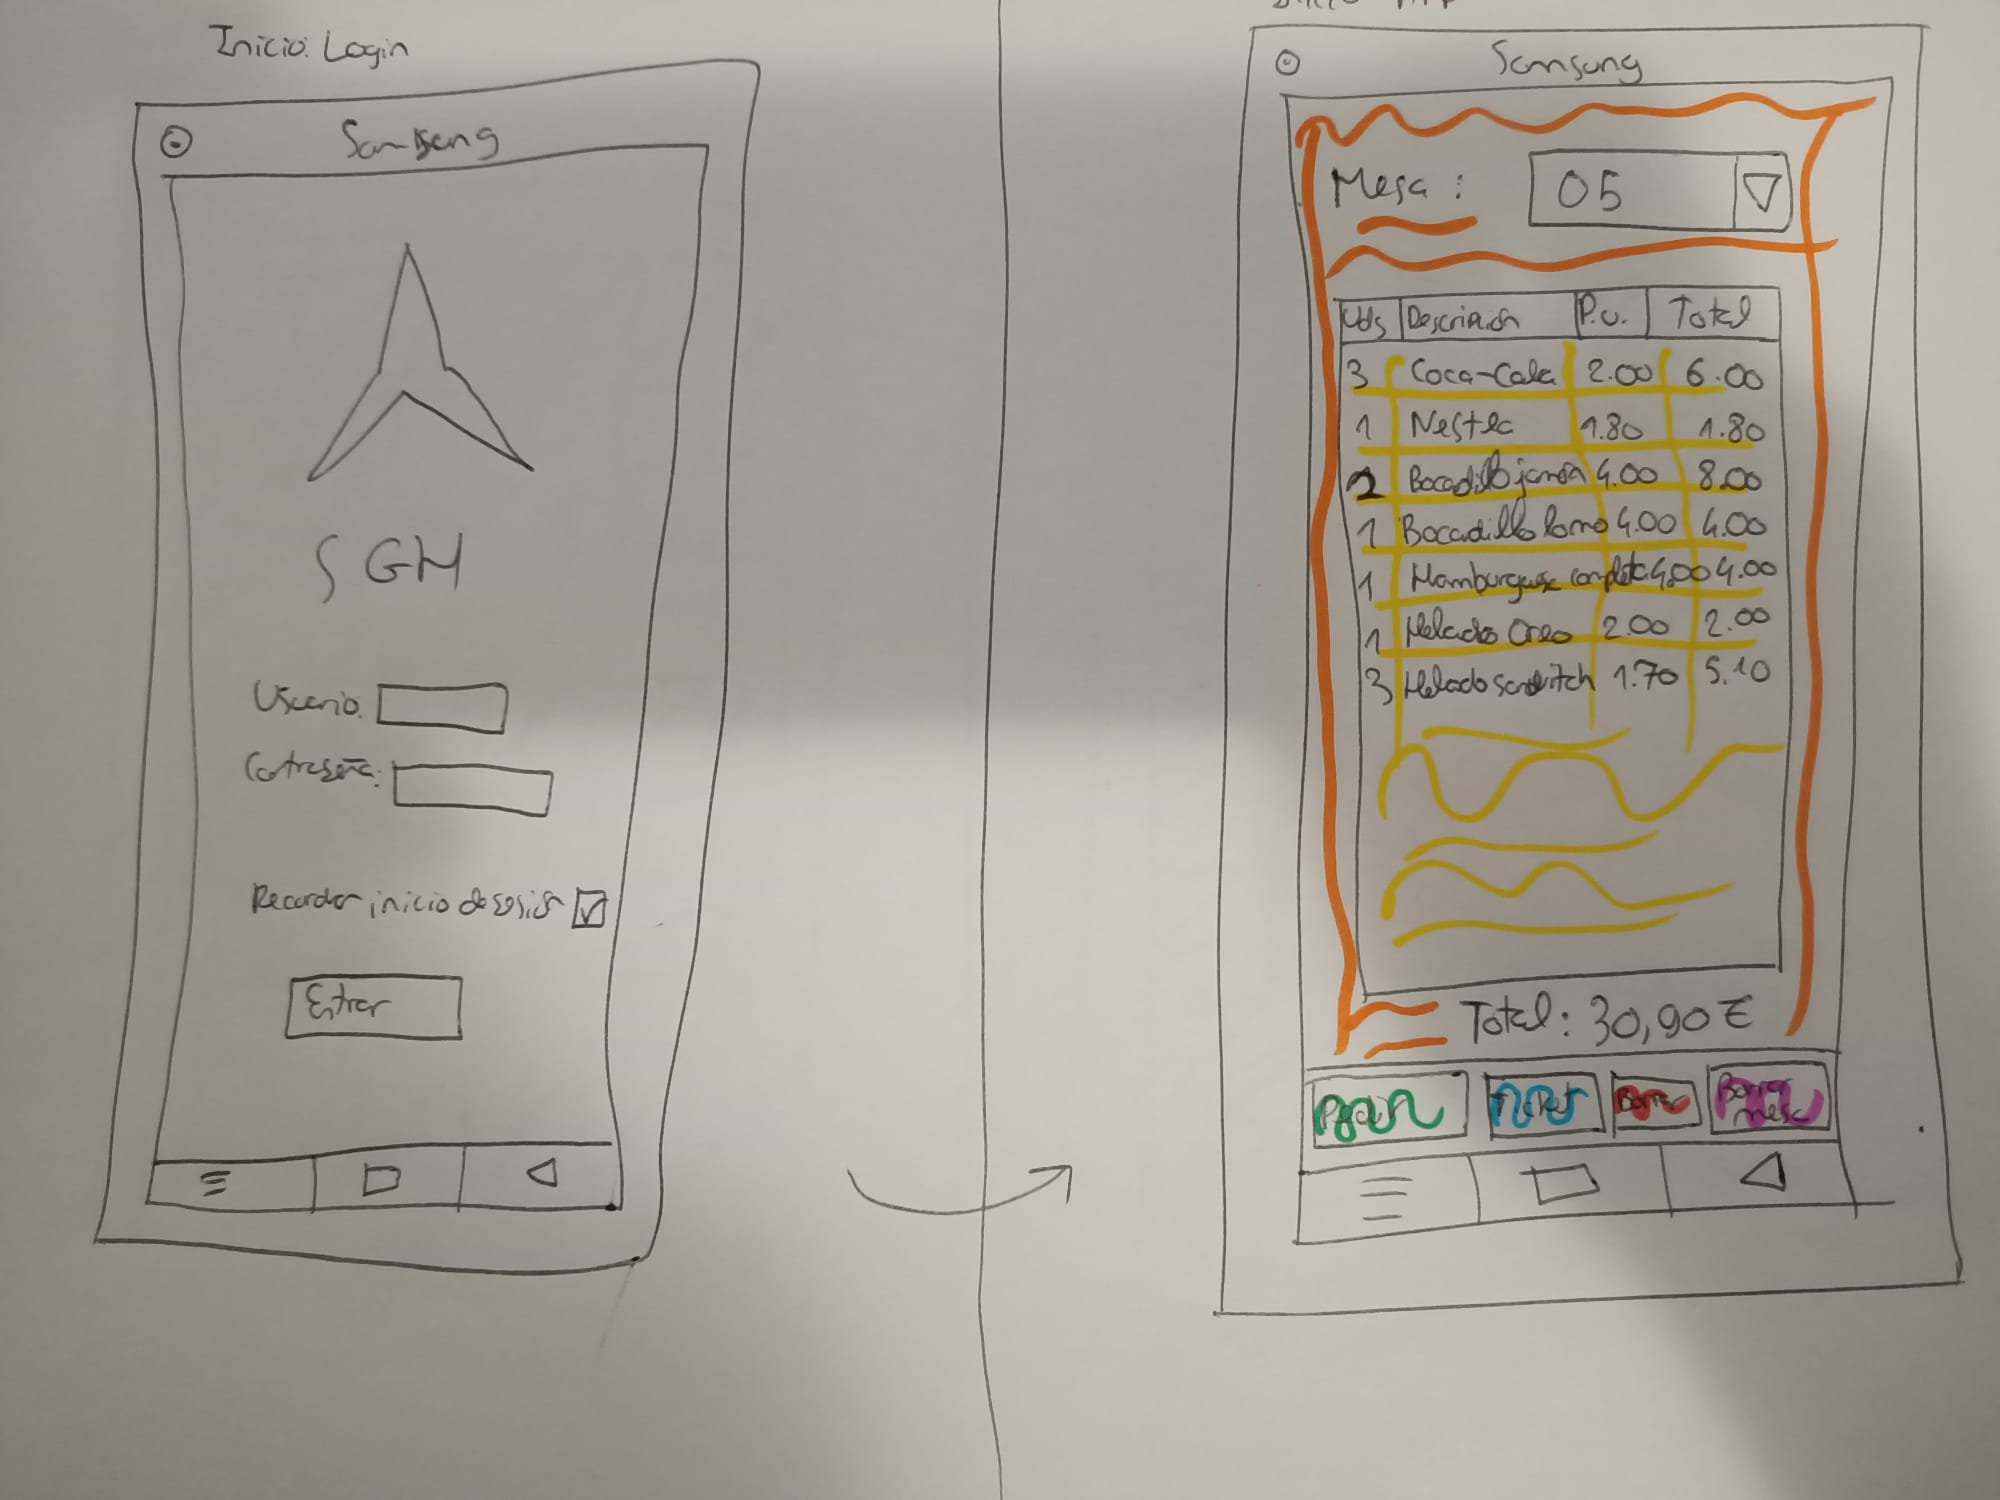 Inicio: Login
Samsung
SGH
Usuario:
Contraseña:
Recordar inicio de sesión
Entrar
Samsung
Mesa: 05
Uds Descripción P.u. Total
3 Coca-Cola 2.00 6.00
1 Nestea 1.80 1.80
2 Bocadillo jamón 4.00 8.00
1 Bocadillo lomo 4.00 4.00
1 Hamburguesa completa 4.00 4.00
1 Helado Oreo 2.00 2.00
3 Helado sandwitch 1.70 5.10
Total: 30,90 €
Pedir Ticket Borrar Borrar mesa